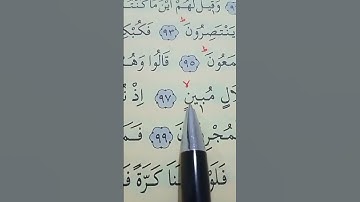 وَقِيلَ لَهُمْ أَيْنَ مَا كُنتُ
يَنتَصِرُونَ ٩٣ فَكُبْكِ
مَعُونَ ٩٥ قَالُوا وَهُ
لَالٍ مُبِينٍ ٩٧ إِذْ نُ
لْمُجْرِ نَ ٩٩ فَمَ
فَلَوْ نَا كَرَّةً فَ